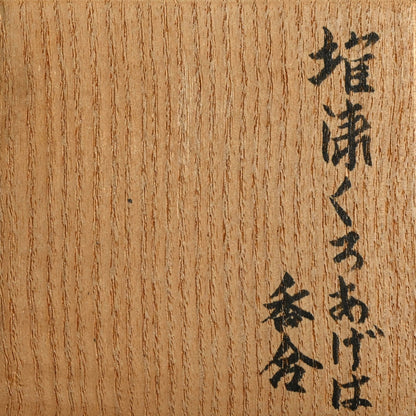 堆漆くろあげは
香合